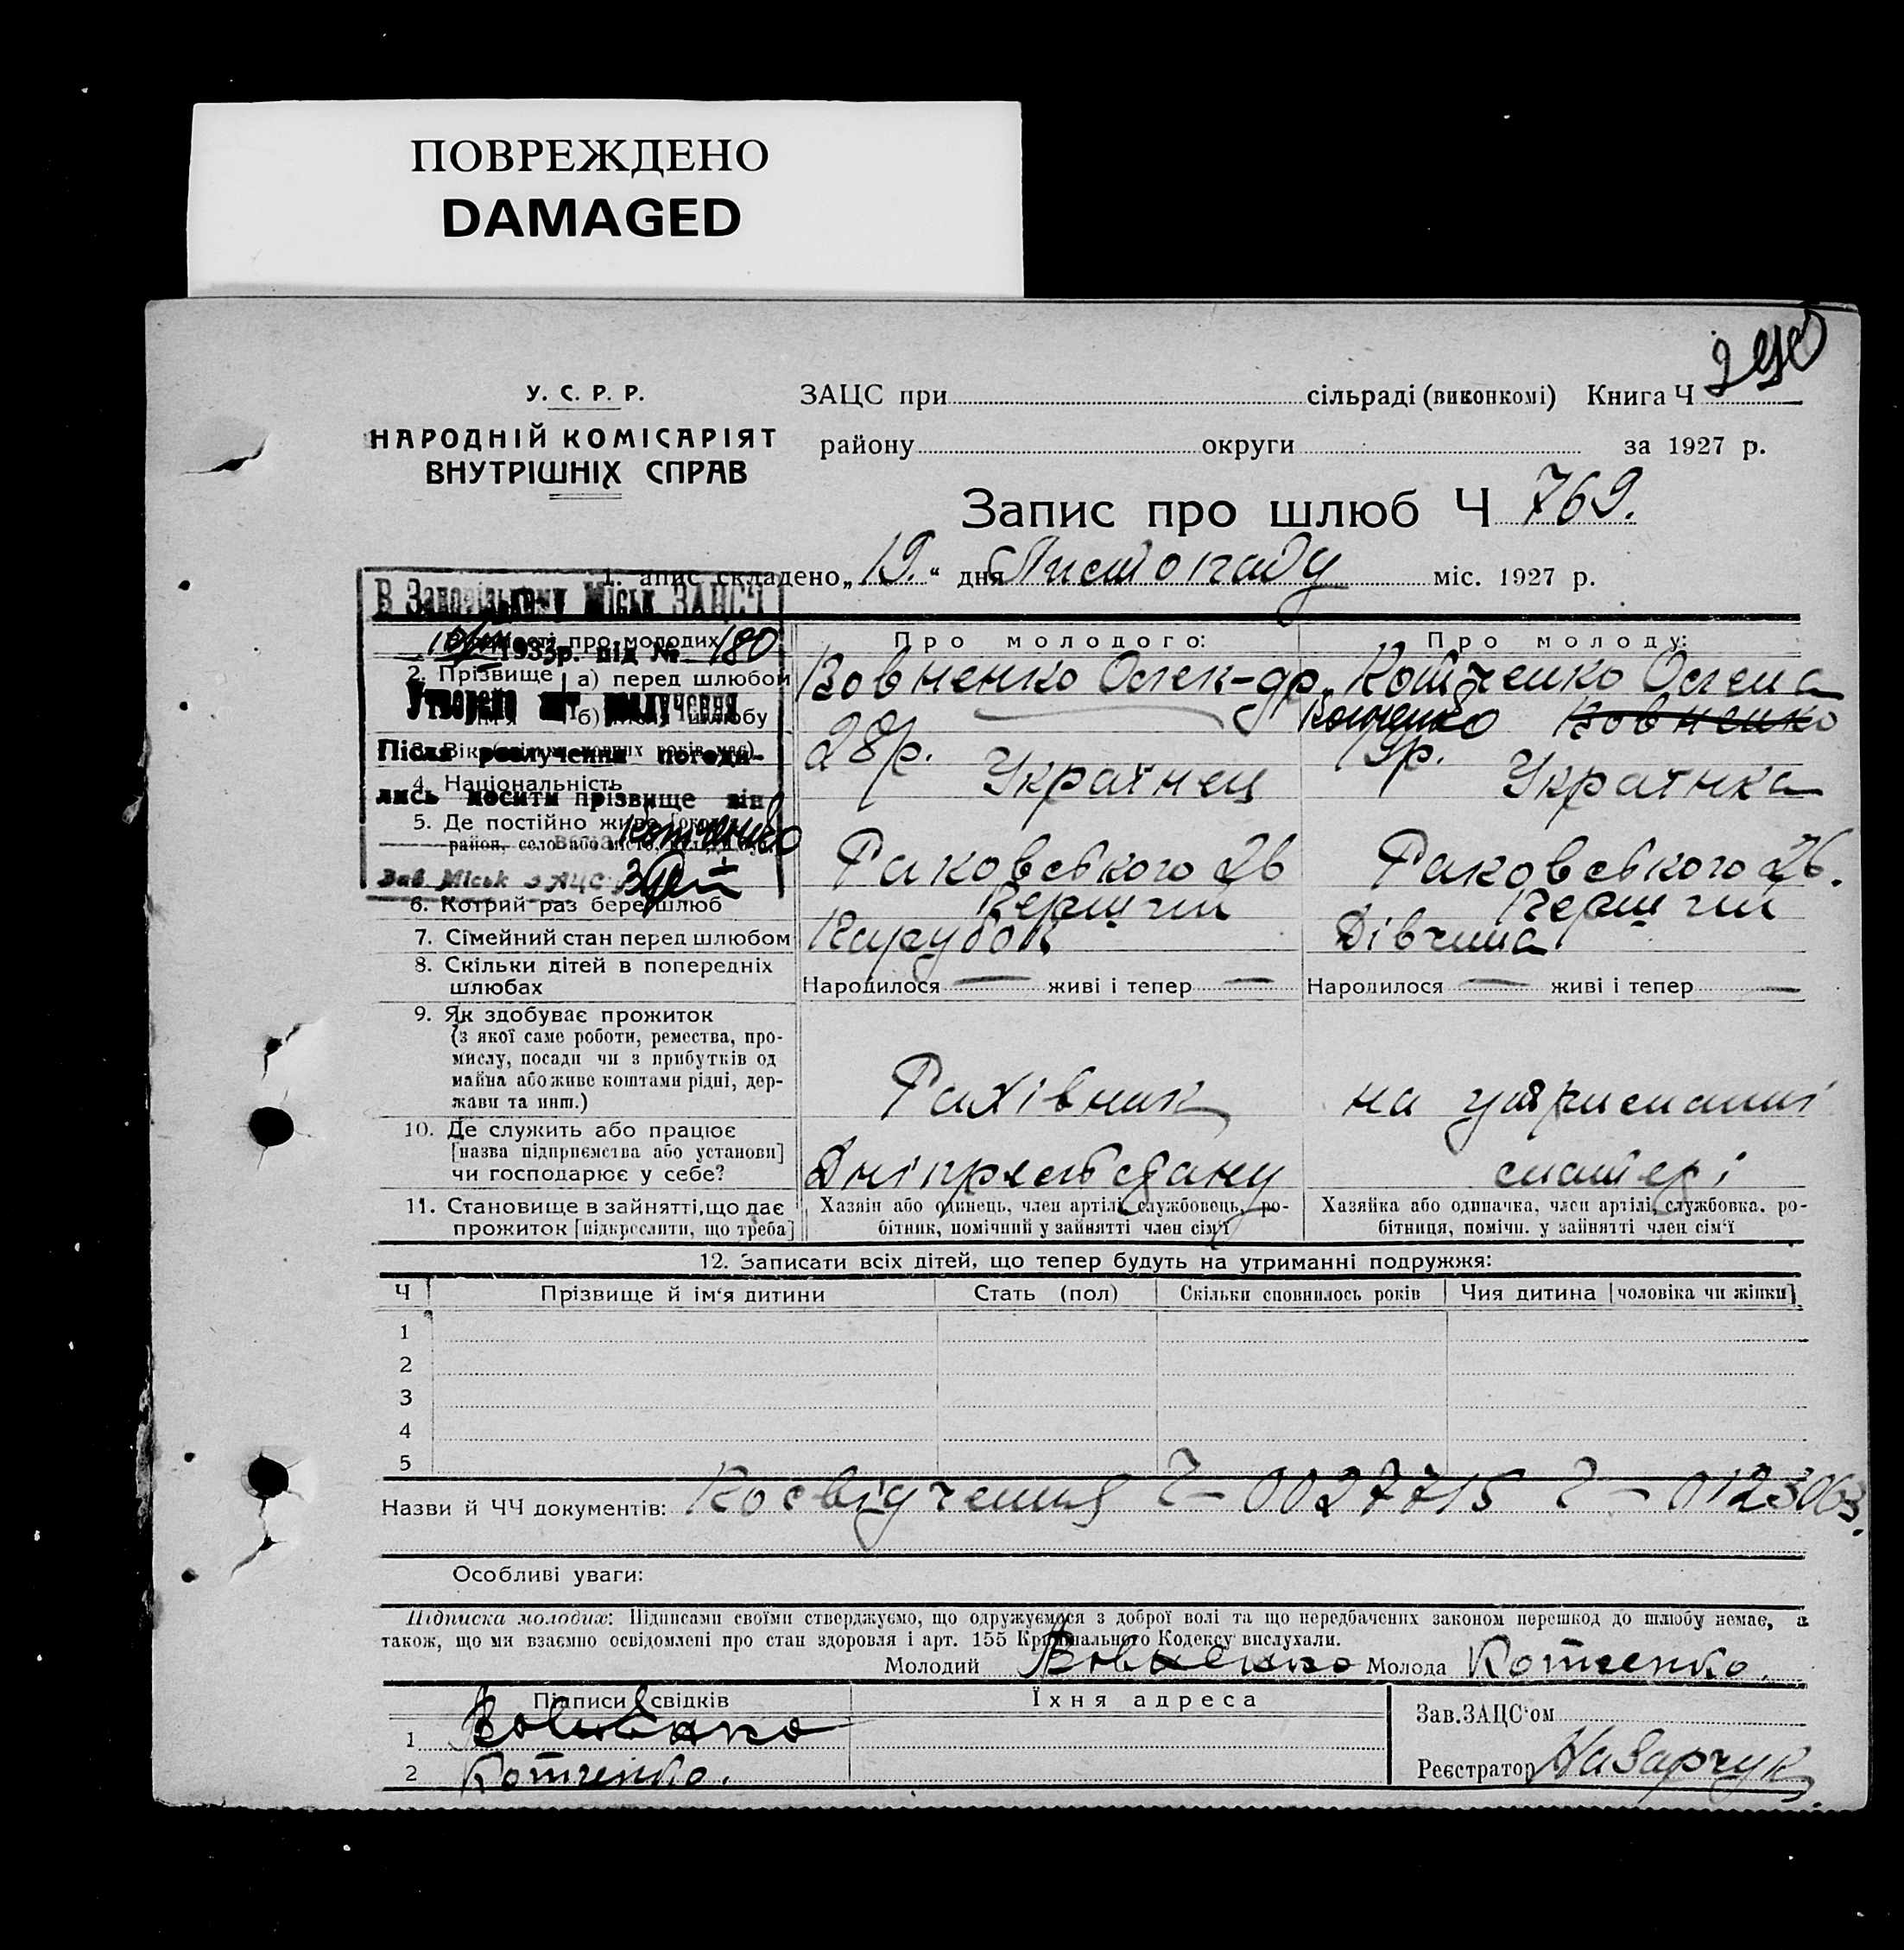 ПОВРЕЖДЕНО
DAMAGED
290
У. С. Р. Р.
НАРОДНІЙ КОМІСАРІЯТ
ВНУТРІШНІХ СПРАВ
ЗАЦС при сільраді (виконкомі) Книга Ч
району округи за 1927 р.
Запис про шлюб Ч 769.
1. апис складено „19.“ дня Листопаду міс. 1927 р.
В Запорізькому Міськ ЗАЦС'і
1933р. під № 180
Утворено акт розлучення
Після розлучення погоди-
лись носити прізвище він
вона Котченко
Зав Міськ ЗАЦС
про молодих Про молодого: Про молоду:
2. Прізвище а) перед шлюбом Вовненко Олек-др. Котченко Олена
б) шлюбу Котченко Вовненко
3. Вік 28р. 19р.
4. Національність Українец Українка
5. Де постійно живе
район, село або місто, Раковського 26 Раковського 26.
6. Котрий раз бере шлюб Перший Перший
7. Сімейний стан перед шлюбом Парубок Дівчина
8. Скільки дітей в попередніх
шлюбах Народилося — живі і тепер — Народилося — живі і тепер —
9. Як здобуває прожиток
(з якої саме роботи, ремества, про-
мислу, посади чи з прибутків од
майна або живе коштами рідні, дер-
жави та инш.) Рахівник на утриманні
10. Де служить або працює
[назва підприємства або установи]
чи господарює у себе? матері
11. Становище в зайнятті, що дає
прожиток [підкреслити, що треба]
Хазяїн або одинець, член артілі, службовець, ро-
бітник, помічний у зайнятті член сім'ї
Хазяйка або одиначка, член артілі, службовка, ро-
бітниця, помічн. у зайнятті член сім'ї
12. Записати всіх дітей, що тепер будуть на утриманні подружжя:
Ч Прізвище й ім'я дитини Стать (пол) Скільки сповнилось років Чия дитина [чоловіка чи жінки]
1
2
3
4
5
Назви й ЧЧ документів: Посвідчення Ч – 0027715 Ч – 0123063.
Особливі уваги:
Підписка молодих: Підписами своїми стверджуємо, що одружуємося з доброї волі та що передбачених законом перешкод до шлюбу немає, а
також, що ми взаємно освідомлені про стан здоровля і арт. 155 Кримінального Кодексу вислухали.
Молодий Вовненко Молода Котченко.
Підписи свідків Їхня адреса
1
2 Котченко.
Зав.ЗАЦС'ом
Реєстратор Назарчук